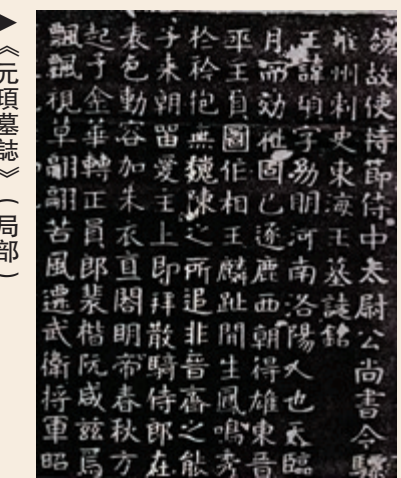 魏故使持節侍中太尉公尚書令驃
雍州刺史東海王墓誌銘
王諱頊字勗明河南洛陽人也天臨
月而効祉固已逐鹿西朝得雄東晉
平王負圖作相王麟趾間生鳳鳴秀
於衿抱無魏陳之所追非晉齊之能
子来朝留愛主上即拜散騎侍郎在
表色動容加朱衣直閤明帝春秋方
起予金華轉正員郎裴楷阮咸兹焉
飄飄視草翩翩苦風遷武衛將軍昭
▶《元頊墓誌》（局部）